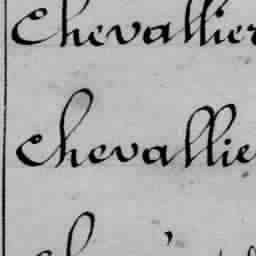 Chevallier
Chevallie